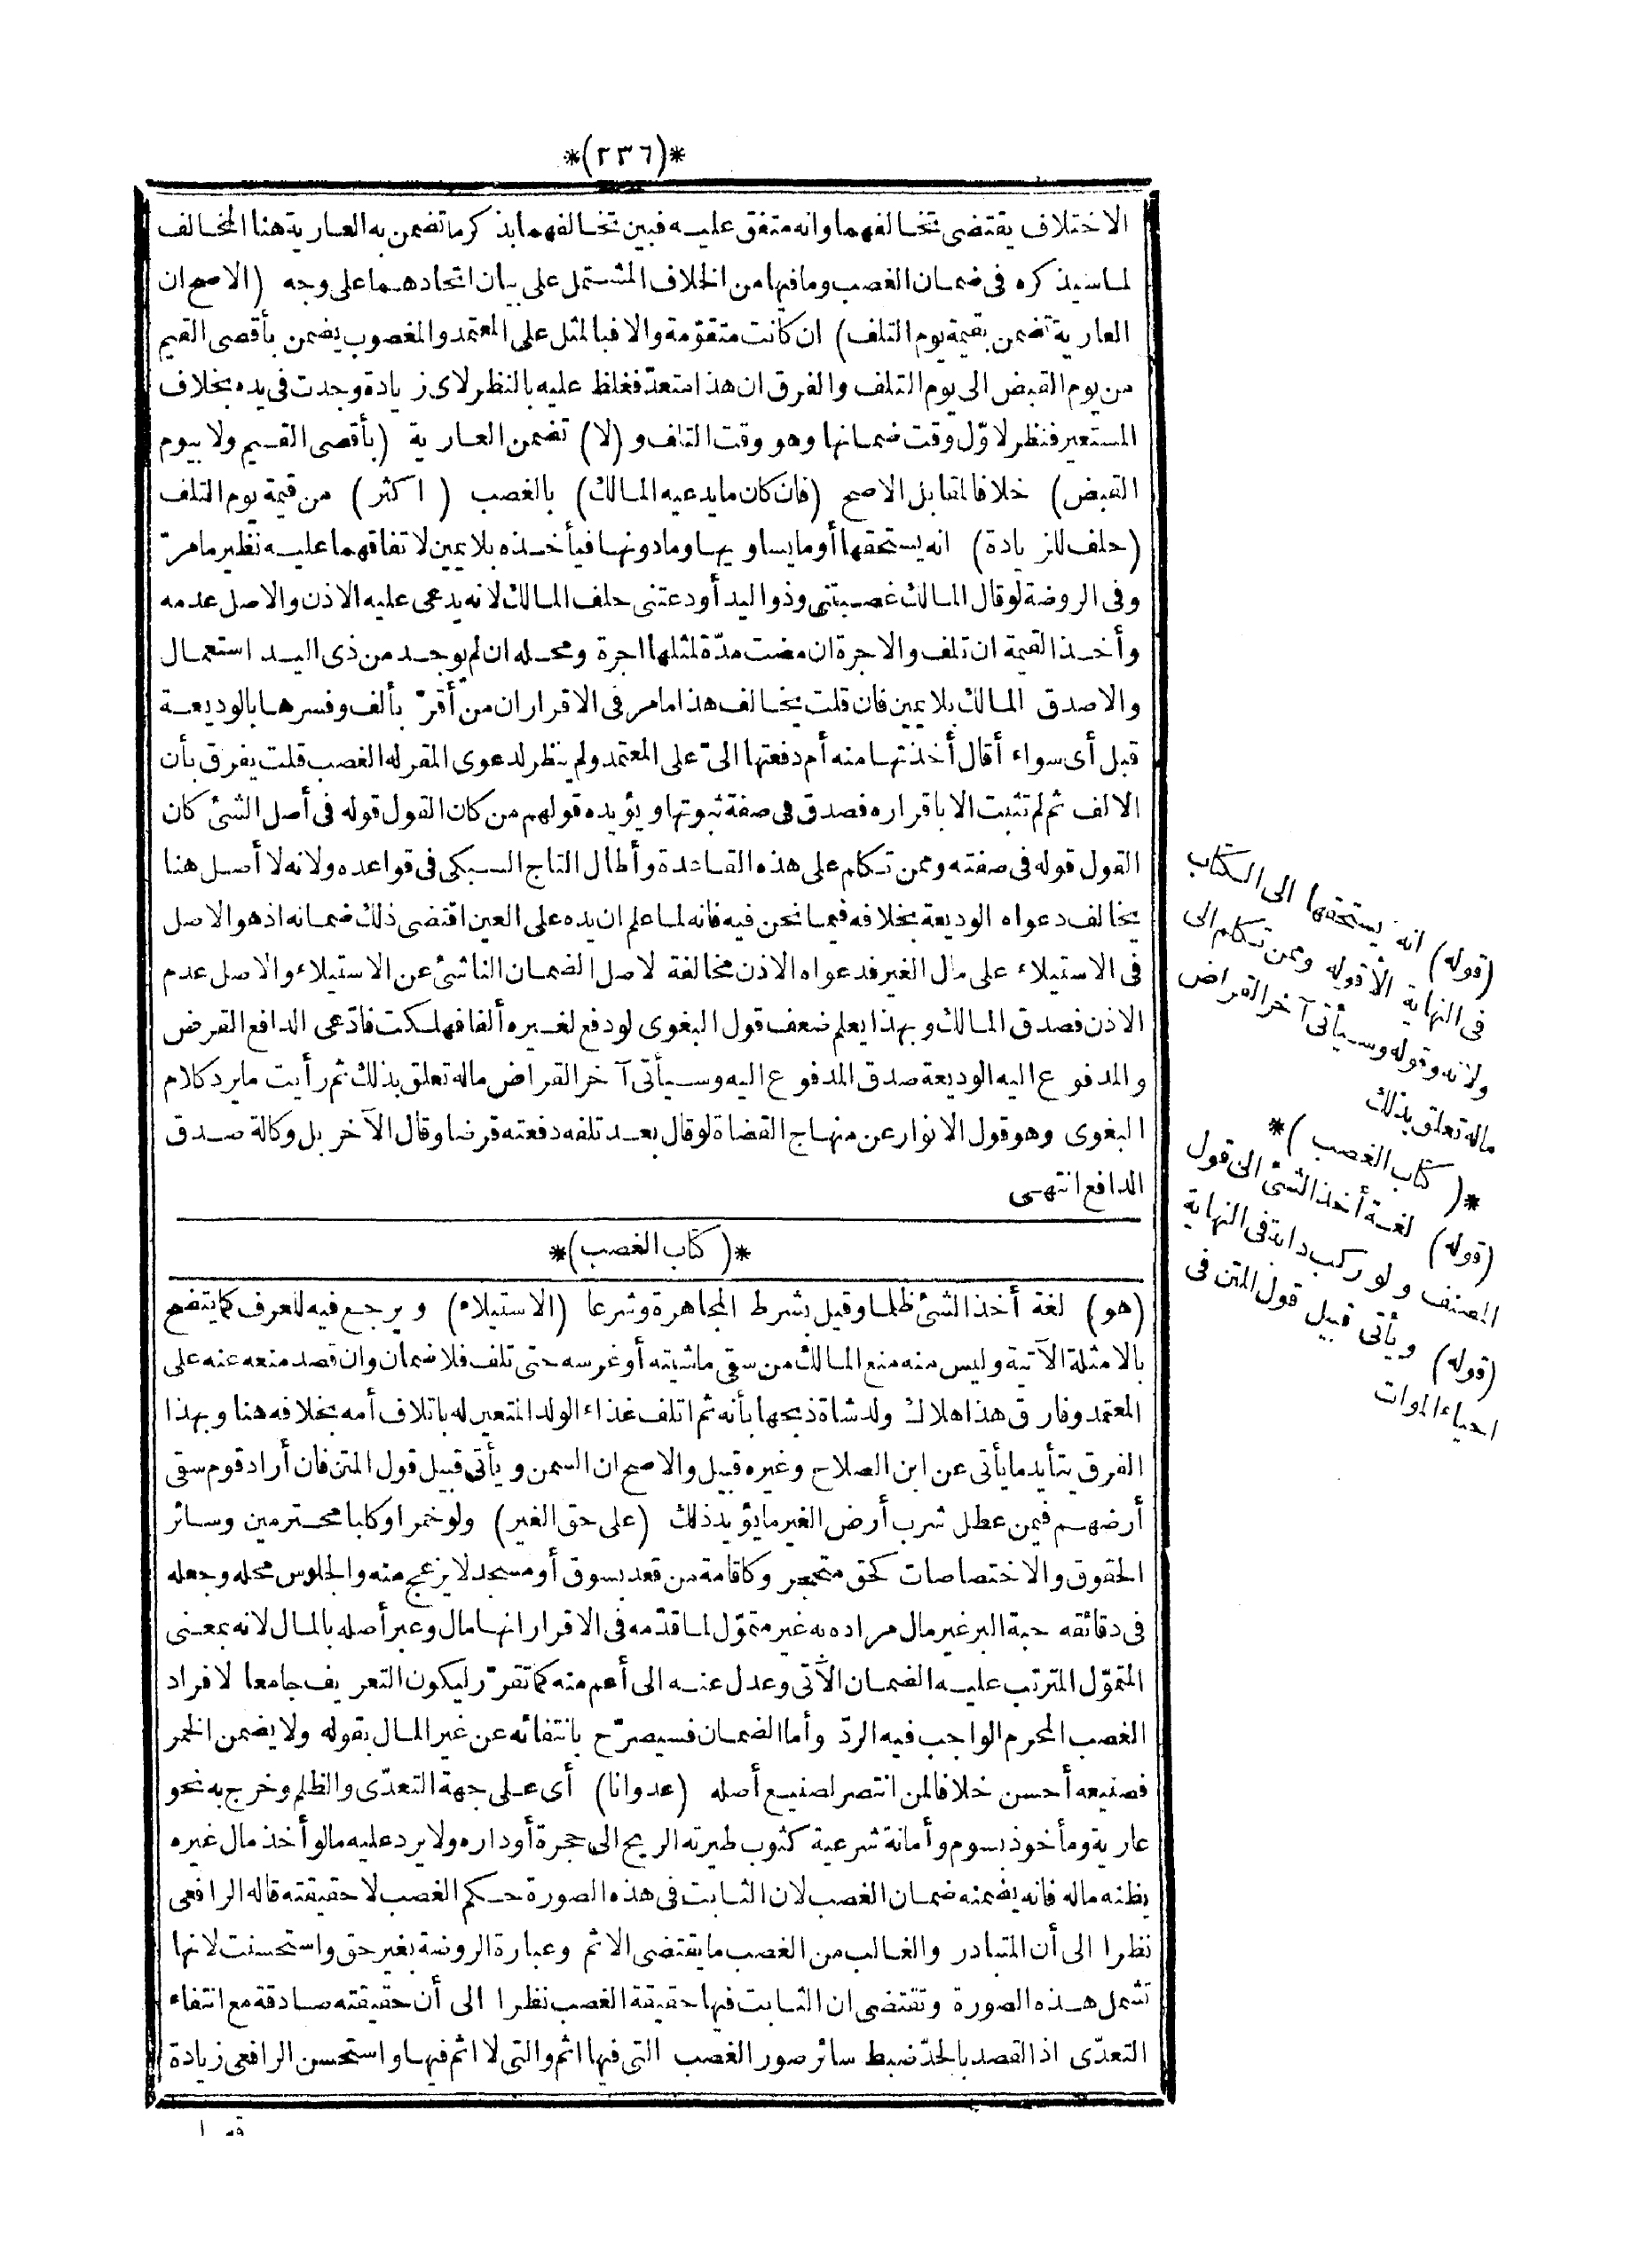 *(٢٣٦)*
الاختلاف يقتضى تخالفهما وانه متفق عليه فبين تخالفهما بذكر ما تضمن به العارية هنا المخالف
لما سيذكره فى ضمان الغصب وما فيها من الخلاف المشتمل على بيان اتحادهما على وجه (الاصح ان
العارية تضمن بقيمة يوم التلف) ان كانت متقوّمة والا فبالمثل على المعتمد والمغصوب يضمن بأقصى القيم
من يوم القبض الى يوم التلف والفرق ان هذا متعدّ فغلظ عليه بالنظر لاى زيادة وجدت فى يده بخلاف
المستعير فنظر لاوّل وقت ضمانها وهو وقت التلف و (لا) تضمن العارية (بأقصى القيم ولا بيوم
القبض) خلافا لمقابل الاصح (فان كان ما يدعيه المالك) بالغصب (اكثر) من قيمة يوم التلف
(حلف للزيادة) انه يستحقها أو ما يساويها وما دونها فيأخذه بلا يمين لاتفاقهما عليه نظير ما مرّ
وفى الروضة لو قال المالك غصبتنى وذو اليد أودعتنى حلف المالك لانه يدعى عليه الاذن والاصل عدمه
وأخذ القيمة ان تلف والاجرة ان مضت مدّة لمثلها اجرة ومحله ان لم يوجد من ذى اليد استعمال
والا صدق المالك بلا يمين فان قلت يخالف هذا ما مر فى الاقرار ان من أقرّ بألف وفسرها بالوديعة
قبل أى سواء أقال أخذتها منه أم دفعتها الىّ على المعتمد ولم ينظر لدعوى المقر له الغصب قلت يفرق بأن
الالف ثم لم تثبت الا باقراره فصدق فى صفة ثبوتها ويؤيده قولهم من كان القول قوله فى أصل الشئ كان
القول قوله فى صفته وممن تكلم على هذه القاعدة وأطال التاج السبكى فى قواعده ولانه لا أصل هنا
يخالف دعواه الوديعة بخلافه فيما نحن فيه فانه لما علم ان يده على العين اقتضى ذلك ضمانه اذ هو الاصل
فى الاستيلاء على مال الغير فدعواه الاذن مخالفة لاصل الضمان الناشئ عن الاستيلاء والاصل عدم
الاذن فصدق المالك وبهذا يعلم ضعف قول البغوى لو دفع لغيره ألفا فهلكت فادّعى الدافع القرض
والمدفوع اليه الوديعة صدق المدفوع اليه وسيأتى آخر القراض ما له تعلق بذلك ثم رأيت ما يرد كلام
البغوى وهو قول الانوار عن منهاج القضاة لو قال بعد تلفه دفعته قرضا وقال الآخر بل وكالة صدق
الدافع انتهى
*(كتاب الغصب)*
(هو) لغة أخذ الشئ ظلما وقيل بشرط المجاهرة وشرعا (الاستيلاء) ويرجع فيه للعرف كما يتضح
بالامثلة الآتية وليس منه منع المالك من سقى ماشيته أو غرسه حتى تلف فلا ضمان وان قصد منعه عنه على
المعتمد وفارق هذا هلاك ولد شاة ذبحها بأنه ثم اتلف غذاء الولد المتعين له باتلاف أمه بخلافه هنا وبهذا
الفرق يتأيد ما يأتى عن ابن الصلاح وغيره قبيل والاصح ان السمن ويأتى قبيل قول المتن فان أراد قوم سقى
أرضهم فيمن عطل شرب أرض الغير ما يؤيد ذلك (على حق الغير) ولو خمرا وكلبا محترمين وسائر
الحقوق والاختصاصات كحق متحجر وكاقامة من قعد بسوق أو مسجد لا يزعج منه والجلوس محله وجعله
فى دقائقه حبة البر غير مال مراده به غير متموّل لما قدّمه فى الاقرار انها مال وعبر أصله بالمال لانه بمعنى
المتموّل المترتب عليه الضمان الآتى وعدل عنه الى أعم منه كما تقرّر ليكون التعريف جامعا لافراد
الغصب المحرم الواجب فيه الردّ وأما الضمان فسيصرّح بانتفائه عن غير المال بقوله ولا يضمن الخمر
فصنيعه أحسن خلافا لمن انتصر لصنيع أصله (عدوانا) أى على جهة التعدّى والظلم وخرج به نحو
عارية ومأخوذ بسوم وأمانة شرعية كثوب طيرته الريح الى حجرة أو داره ولا يرد عليه ما لو أخذ مال غيره
يظنه ماله فانه يضمنه ضمان الغصب لان الثابت فى هذه الصورة حكم الغصب لا حقيقته قاله الرافعى
نظرا الى أن المتبادر والغالب من الغصب ما يقتضى الاثم وعبارة الروضة بغير حق واستحسنت لانها
تشمل هذه الصورة وتقتضى ان الثابت فيها حقيقة الغصب نظرا الى أن حقيقته صادقة مع انتفاء
التعدّى اذ القصد بالحدّ ضبط سائر صور الغصب التى فيها اثم والتى لا اثم فيها واستحسن الرافعى زيادة
(قوله) انه يستحقها الى الكتاب
فى النهاية الا قوله وممن تكلم الى
ولانه وقوله وسيأتى آخر القراض
ما له تعلق بذلك
*(كتاب الغصب)*
(قوله) لغة أخذ الشئ الى قول
المصنف ولو ركب دابة فى النهاية
(قوله) ويأتى قبيل قول المتن فى
احياء الموات